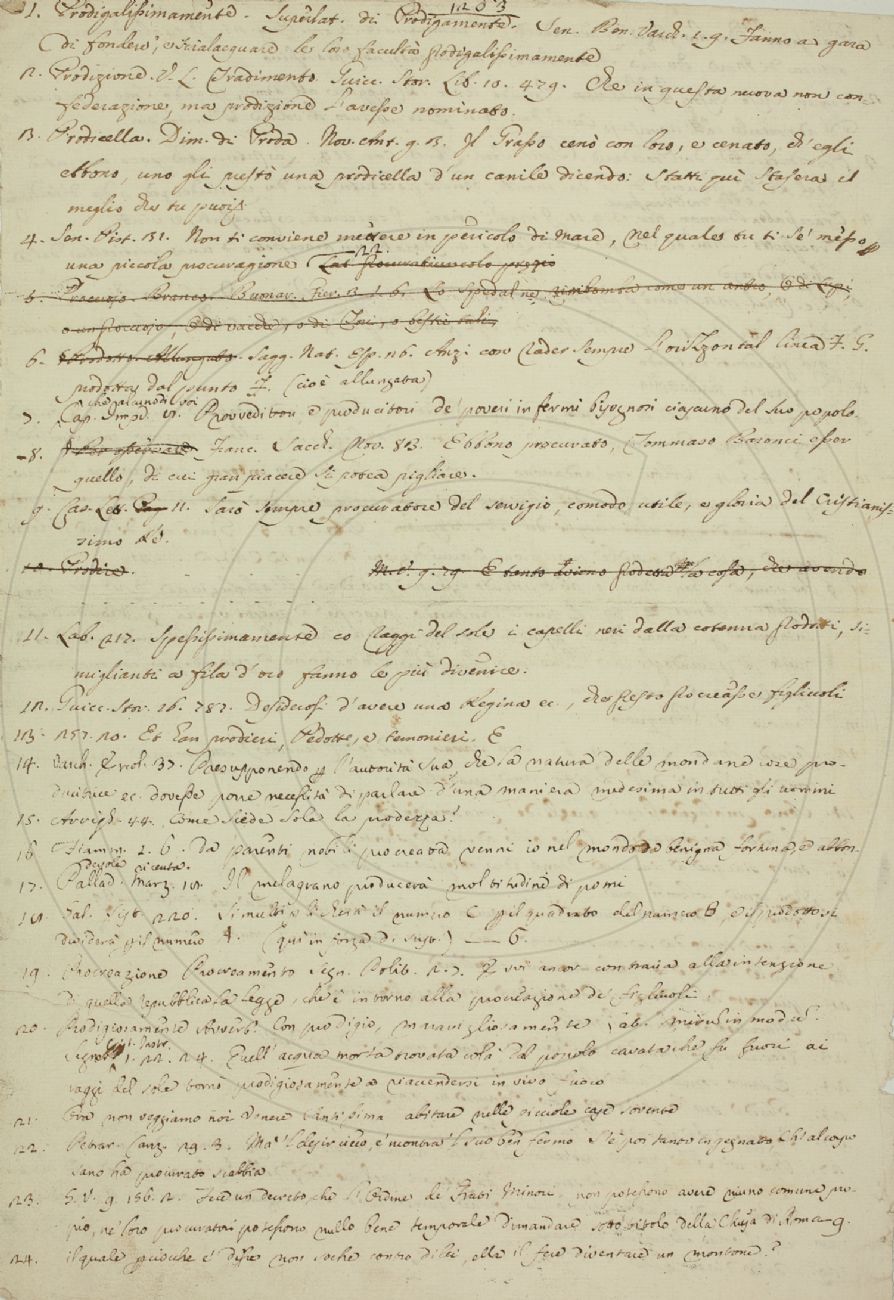 1203
1. Prodigalissimamente. Superlat. di Prodigamente. Sen. Ben. Varch. 2. 9. Fanno a gara
di fondere, e scialacquare le loro facultà prodigalissimamente
2. Prodizione. V. L. Tradimento. Guicc. Stor. Lib. 10. 479. Che in questa nuova non con-
federazione, ma prodizione l'avesse nominato.
13. Prodicella. Dim. di Proda. Nov. Ant. g. 13. Il Grasso cenò con loro, e cenato, ch'egli
ebbono, uno gli prestò una prodicella d'un canile dicendo: Statti quì stasera il
meglio che tu puoi
4. Sen. Pist. 131. Non ti conviene mettere in pericolo di mare, nel quale tu ti sè messo
una piccola procuragione
6. Sagg. Nat. Esp. 26. Anzi con rader sempre l'orizzontal linea F. G.
prodotta dal punto F. (cioè allungata)
7. Cap. Impr. Provveditori e producitori de' poveri infermi bisognosi ciascuno del suo popolo.
8. Franc. Sacch. Nov. 83. Ebbono procurato, Tommaso Baronci esser
quello, di cui gran piacere si potea pigliare.
9. Cas. Let. 11. Sarò sempre procuratore del servigio, comodo, utile, e gloria del Cristianis-
simo Rè.
10. Prodire. M. V. 9. 79.
11. Lab. 212. Spessissimamente co raggi del sole i capelli neri dalla cotenna prodotti, si-
miglianti a fila d'oro fanno le più divenire.
12. Guicc. Stor. 16. 787. Desideroso d'avere una Regina ec., che presto procreasse figliuoli
13. 257. 20. Et eran prodieri, Pedotte, e temonieri. E
14. Varch. Ercol. 37. Presupponendo l'autorità sua che la natura delle mondane cose pro-
duttrice ec. dovesse porre necessità di parlare d'una maniera medesima in tutti gli uomini
15. Arrigh. 44. Come siede sola la prodezza?
16. Fiamm. 1. 6. Da parenti nobili procreata venni io nel mondo da benigna fortuna, e abbon-
devole ricevuta.
17. Pallad. Marz. 18. Il melagrano producerà moltitudine di pomi
18. Gal. Sist. 220. Si multiplicherà il numero C pel quadrato del numero B, e il prodotto si
dividerà pel numero A. (quì in forza di sust.) — 6.
19. Procreazione Procreamento Segn. Polit. 2. 7. E poi ancor contraria alla intenzione
di quella repubblica la legge, ch'è intorno alla procreazione de' figliuoli.
20. Prodigiosamente Avverb. Con prodigio, maravigliosamente Lat. mirum in modum.
Segner. Crist. Instr. 1. 22. 24. Quell'acqua morta trovata colà dal popolo cavata che fu fuori ai
raggi del sole tornò prodigiosamente a riaccendersi in vivo fuoco
21. Ora non veggiamo noi Venere santissima abitare nelle piccole case sovente
22. Petrar. Canz. 29. 3. Ma 'l desir cieco, e 'ncontra 'l suo ben fermo S'è poi tanto ingegnato, Ch'al corpo
sano ha procurato scabbia
23. G. V. 9. 156. 2. Fece un decreto, che l'Ordine de' Frati Minori non potessono avere niuno comune pro-
prio, nè loro procuratori potessono nullo bene temporale dimandare sotto titolo della Chiesa di Roma
24. il quale perchè e' disse non so che contro di lei, ella il fece diventare un montone?